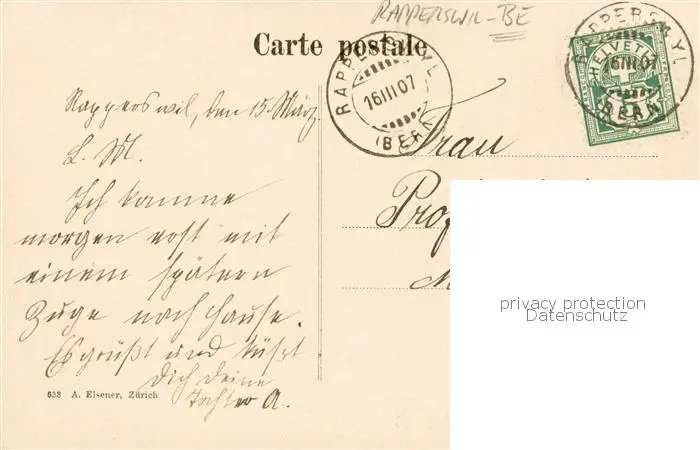 RAPPERSWIL-BE
Carte postale
RAPPERSWYL
16III07
(BERN)
RAPPERSWYL
16III07
(BERN)
HELVETIA
Rapperswil, den 15. März.
L. M.
Ich komme
morgen erst mit
einem spätern
Zuge nach Hause.
Es grüßt und küßt
Dich Deine
Tochter A.
Frau
Prof
M
privacy protection
Datenschutz
653 A. Elsener, Zürich